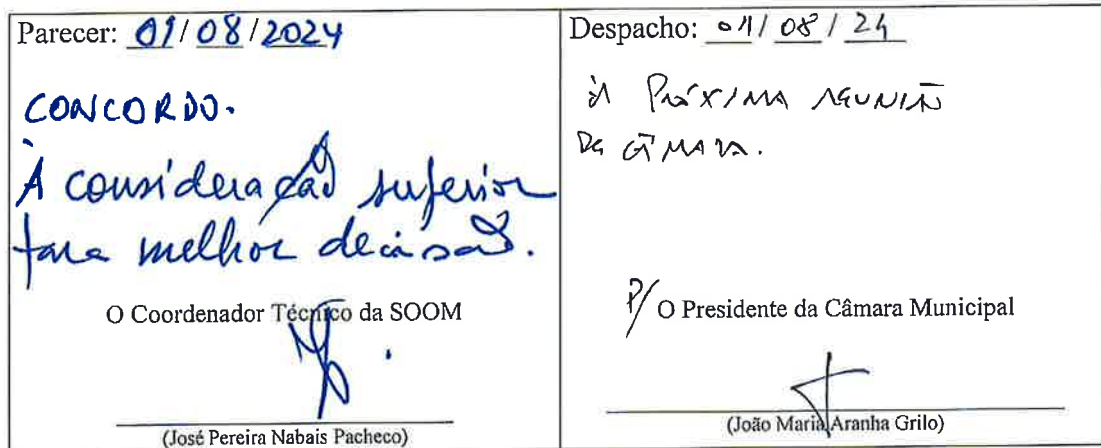 Parecer: 01/08/2024
CONCORDO.
À consideração superior
para melhor decisão.
O Coordenador Técnico da SOOM
(José Pereira Nabais Pacheco)
Despacho: 01/08/24
À PRÓXIMA REUNIÃO
DE CÂMARA.
P/ O Presidente da Câmara Municipal
(João Maria Aranha Grilo)